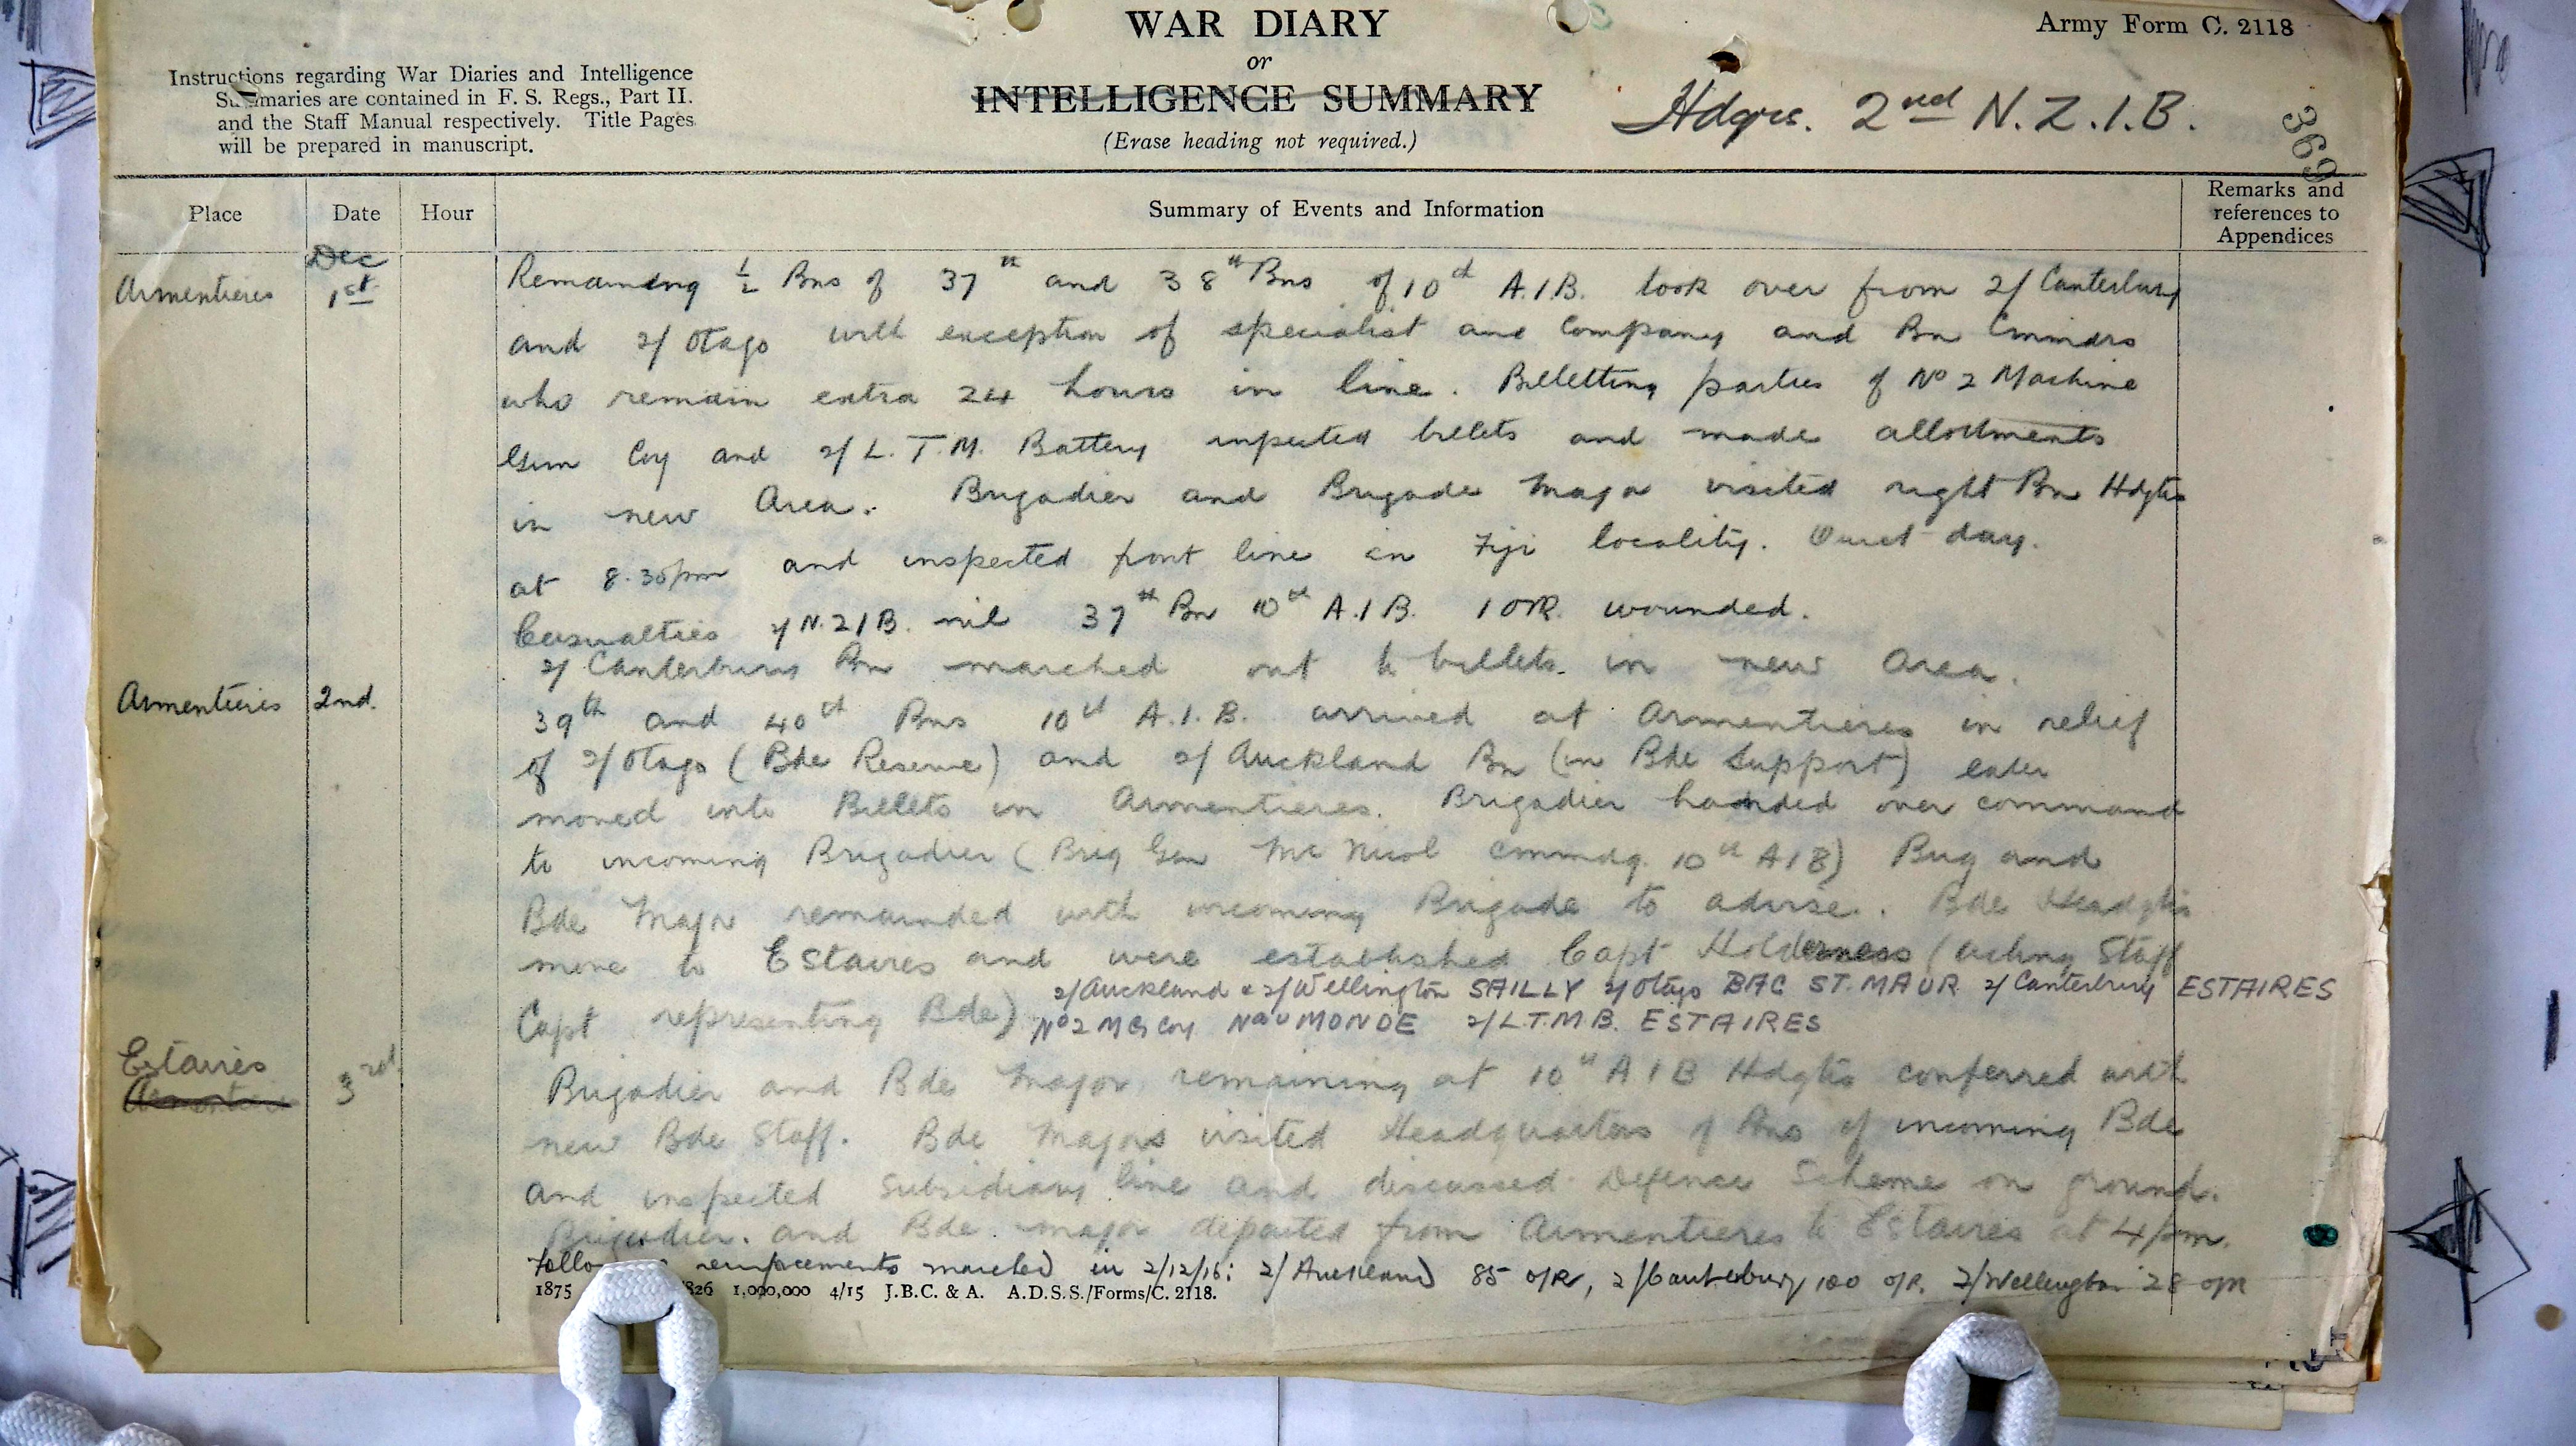 WAR DIARY
or
INTELLIGENCE SUMMARY
(Erase heading not required.)
Army Form C. 2118
Instructions regarding War Diaries and Intelligence
Summaries are contained in F. S. Regs., Part II.
and the Staff Manual respectively. Title Pages
will be prepared in manuscript.
Hdqrs. 2nd N.Z.I.B.
369
Place Date Hour Summary of Events and Information Remarks and references to Appendices
Armentieres Dec 1st Remaining ½ Bns of 37th and 38th Bns of 10th A.I.B. took over from 2/Canterbury
and 2/Otago with exception of specialist and Company and Bn Cmmdrs
who remain extra 24 hours in line. Billetting parties of No 2 Machine
Gun Coy and 2/L.T.M. Battery inspected billets and made allottments
in new Area. Brigadier and Brigade Major visited right Bn Hdqtrs
at 8.30pm and inspected front line in Fiji locality. Quiet day.
Casualties 2/N.Z.I.B. nil 37th Bn 10th A.I.B. 1 OR. wounded.
2/Canterbury Bn marched out to billets in new Area.
Armentieres 2nd. 39th and 40th Bns 10th A.I.B. arrived at Armentieres in relief
of 2/Otago (Bde Reserve) and 2/Auckland Bn (in Bde Support) later
moved into Billets in Armentieres. Brigadier handed over command
to incoming Brigadier (Brig Gen Mc Nicol Cmmdg. 10th A.I.B) Brig and
Bde Major remainded with incoming Brigade to advise. Bde Headqtrs
move to Estaires and were established Capt Holderness (acting Staff
Capt representing Bde) 2/Auckland & 2/Wellington SAILLY 2/Otago BAC ST. MAUR 2/Canterbury ESTAIRES
No 2 MG Coy Nouveau MONDE 2/L.T.M.B. ESTAIRES
Estaires 3rd Brigadier and Bde Major remaining at 10th A I B Hdqtrs conferred with
new Bde Staff. Bde Majors visited Headquarters of Bns of incoming Bde
and inspected Subsidiary line and discussed Defence Scheme on ground.
Brigadier and Bde major departed from Armentieres to Estaires at 4pm.
reinforcements marched in 2/12/16: 2/Auckland 85 O/R, 2/Canterbury 100 O/R, 2/Wellington 28 O/R
1875 826 1,000,000 4/15 J.B.C. & A. A.D.S.S./Forms/C. 2118.